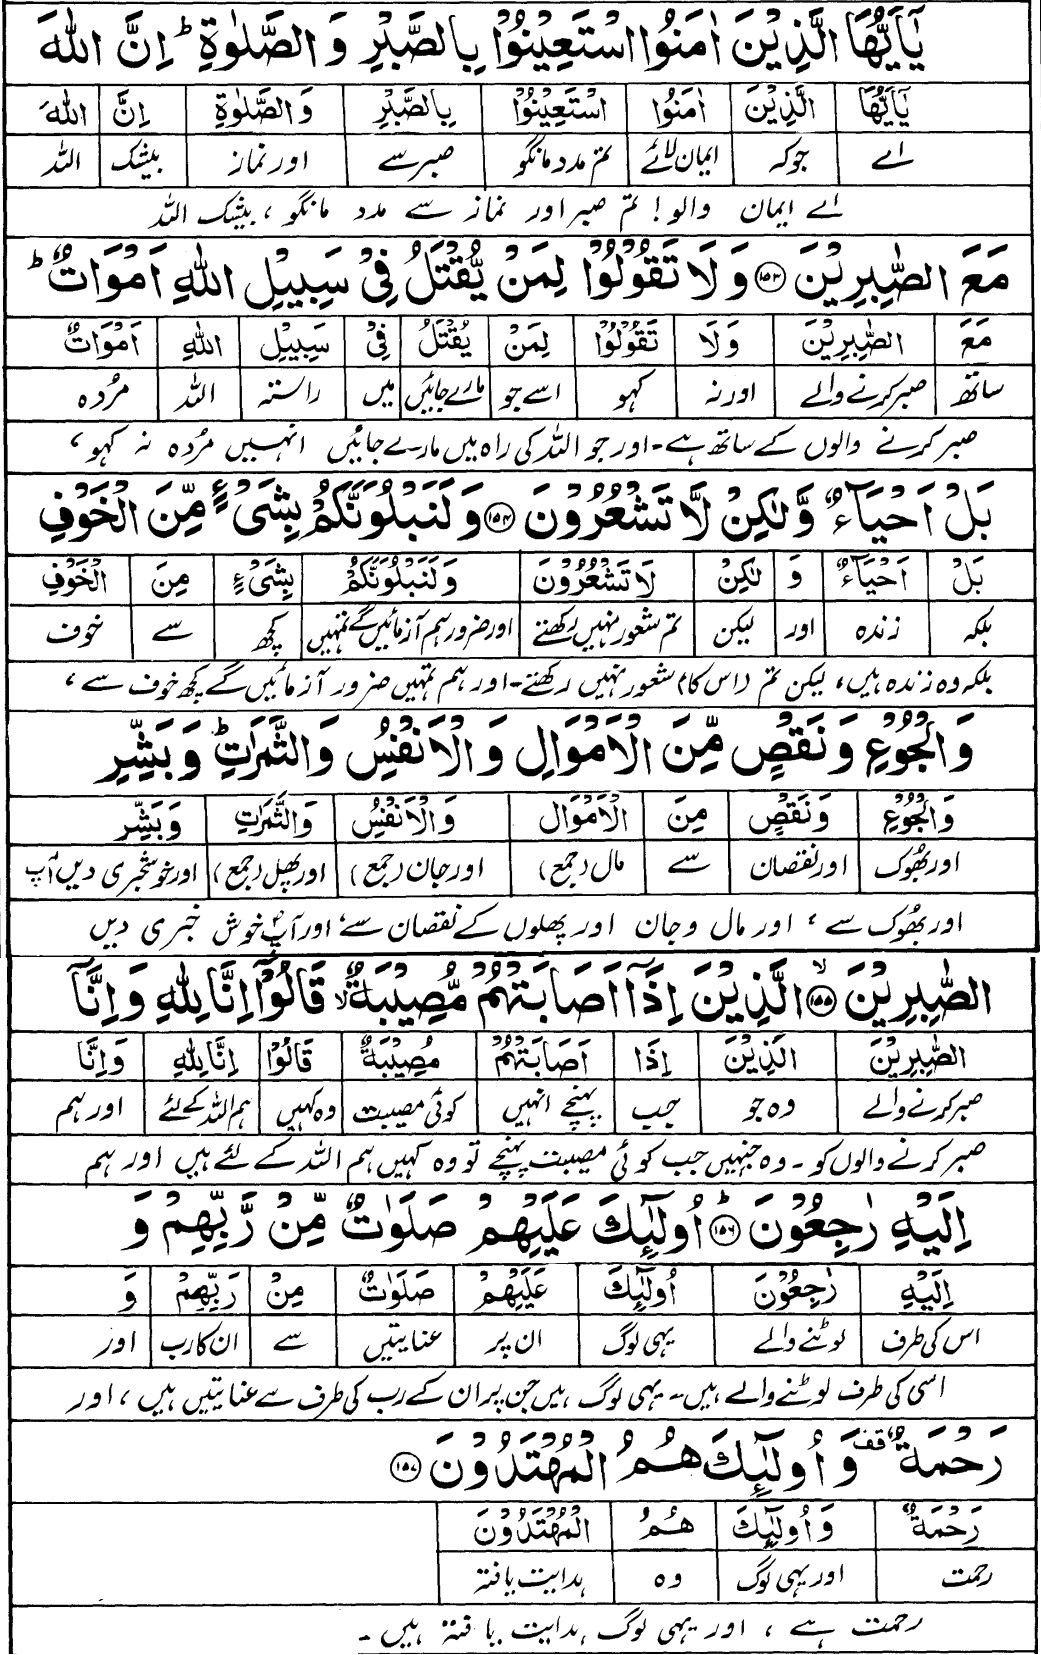 يٰۤاَيُّهَا الَّذِيْنَ اٰمَنُوا اسْتَعِيْنُوْا بِالصَّبْرِ وَ الصَّلٰوةِ ؕ اِنَّ اللّٰهَ
يٰۤاَيُّهَا الَّذِيْنَ اٰمَنُوا اسْتَعِيْنُوْا بِالصَّبْرِ وَالصَّلٰوةِ اِنَّ اللّٰهَ
اے جو کہ ایمان لائے تم مدد مانگو صبر سے اور نماز بیشک اللہ
اے ایمان والو! تم صبر اور نماز سے مدد مانگو، بیشک اللہ
مَعَ الصّٰبِرِيْنَ ﴿۱۵۳﴾ وَ لَا تَقُوْلُوْا لِمَنْ يُّقْتَلُ فِيْ سَبِيْلِ اللّٰهِ اَمْوَاتٌ ؕ
مَعَ الصّٰبِرِيْنَ وَلَا تَقُوْلُوْا لِمَنْ يُقْتَلُ فِيْ سَبِيْلِ اللّٰهِ اَمْوَاتٌ
ساتھ صبر کرنے والے اور نہ کہو اسے جو مارے جائیں میں راستہ اللہ مُردہ
صبر کرنے والوں کے ساتھ ہے۔ اور جو اللہ کی راہ میں مارے جائیں انہیں مُردہ نہ کہو،
بَلْ اَحْيَآءٌ وَّلٰكِنْ لَّا تَشْعُرُوْنَ ﴿۱۵۴﴾ وَلَنَبْلُوَنَّكُمْ بِشَيْءٍ مِّنَ الْخَوْفِ
بَلْ اَحْيَآءٌ وَ لٰكِنْ لَا تَشْعُرُوْنَ وَلَنَبْلُوَنَّكُمْ بِشَيْءٍ مِنَ الْخَوْفِ
بلکہ زندہ اور لیکن تم شعور نہیں رکھتے اور ضرور ہم آزمائیں گے تمہیں کچھ سے خوف
بلکہ وہ زندہ ہیں، لیکن تم (اس کا) شعور نہیں رکھتے۔ اور ہم تمہیں ضرور آزمائیں گے کچھ خوف سے،
وَالْجُوْعِ وَ نَقْصٍ مِّنَ الْاَمْوَالِ وَ الْاَنْفُسِ وَالثَّمَرٰتِ ؕ وَ بَشِّرِ
وَالْجُوْعِ وَنَقْصٍ مِنَ الْاَمْوَالِ وَالْاَنْفُسِ وَالثَّمَرٰتِ وَبَشِّرِ
اور بھُوک اور نقصان سے مال (جمع) اور جان (جمع) اور پھل (جمع) اور خوشخبری دیں آپ
اور بھُوک سے، اور مال و جان اور پھلوں کے نقصان سے، اور آپ خوش خبری دیں
الصّٰبِرِيْنَ ۙ﴿۱۵۵﴾ الَّذِيْنَ اِذَاۤ اَصَابَتْهُمْ مُّصِيْبَةٌ ۙ قَالُوْۤا اِنَّا لِلّٰهِ وَ اِنَّاۤ
الصّٰبِرِيْنَ الَّذِيْنَ اِذَا اَصَابَتْهُمْ مُصِيْبَةٌ قَالُوْا اِنَّا لِلّٰهِ وَاِنَّا
صبر کرنے والے وہ جو جب پہنچے انہیں کوئی مصیبت وہ کہیں ہم اللہ کے لئے اور ہم
صبر کرنے والوں کو۔ وہ جنہیں جب کوئی مصیبت پہنچے تو وہ کہیں ہم اللہ کے لئے ہیں اور ہم
اِلَيْهِ رٰجِعُوْنَ ؕ﴿۱۵۶﴾ اُولٰٓئِكَ عَلَيْهِمْ صَلَوٰتٌ مِّنْ رَّبِّهِمْ وَ
اِلَيْهِ رٰجِعُوْنَ اُولٰٓئِكَ عَلَيْهِمْ صَلَوٰتٌ مِنْ رَبِّهِمْ وَ
اس کی طرف لوٹنے والے یہی لوگ ان پر عنایتیں سے ان کا رب اور
اسی کی طرف لوٹنے والے ہیں۔ یہی لوگ ہیں جن پر ان کے رب کی طرف سے عنایتیں ہیں، اور
رَحْمَةٌ قف وَ اُولٰٓئِكَ هُمُ الْمُهْتَدُوْنَ ﴿۱۵۷﴾
رَحْمَةٌ وَاُولٰٓئِكَ هُمُ الْمُهْتَدُوْنَ
رحمت اور یہی لوگ وہ ہدایت یافتہ
رحمت ہے، اور یہی لوگ ہدایت یافتہ ہیں۔